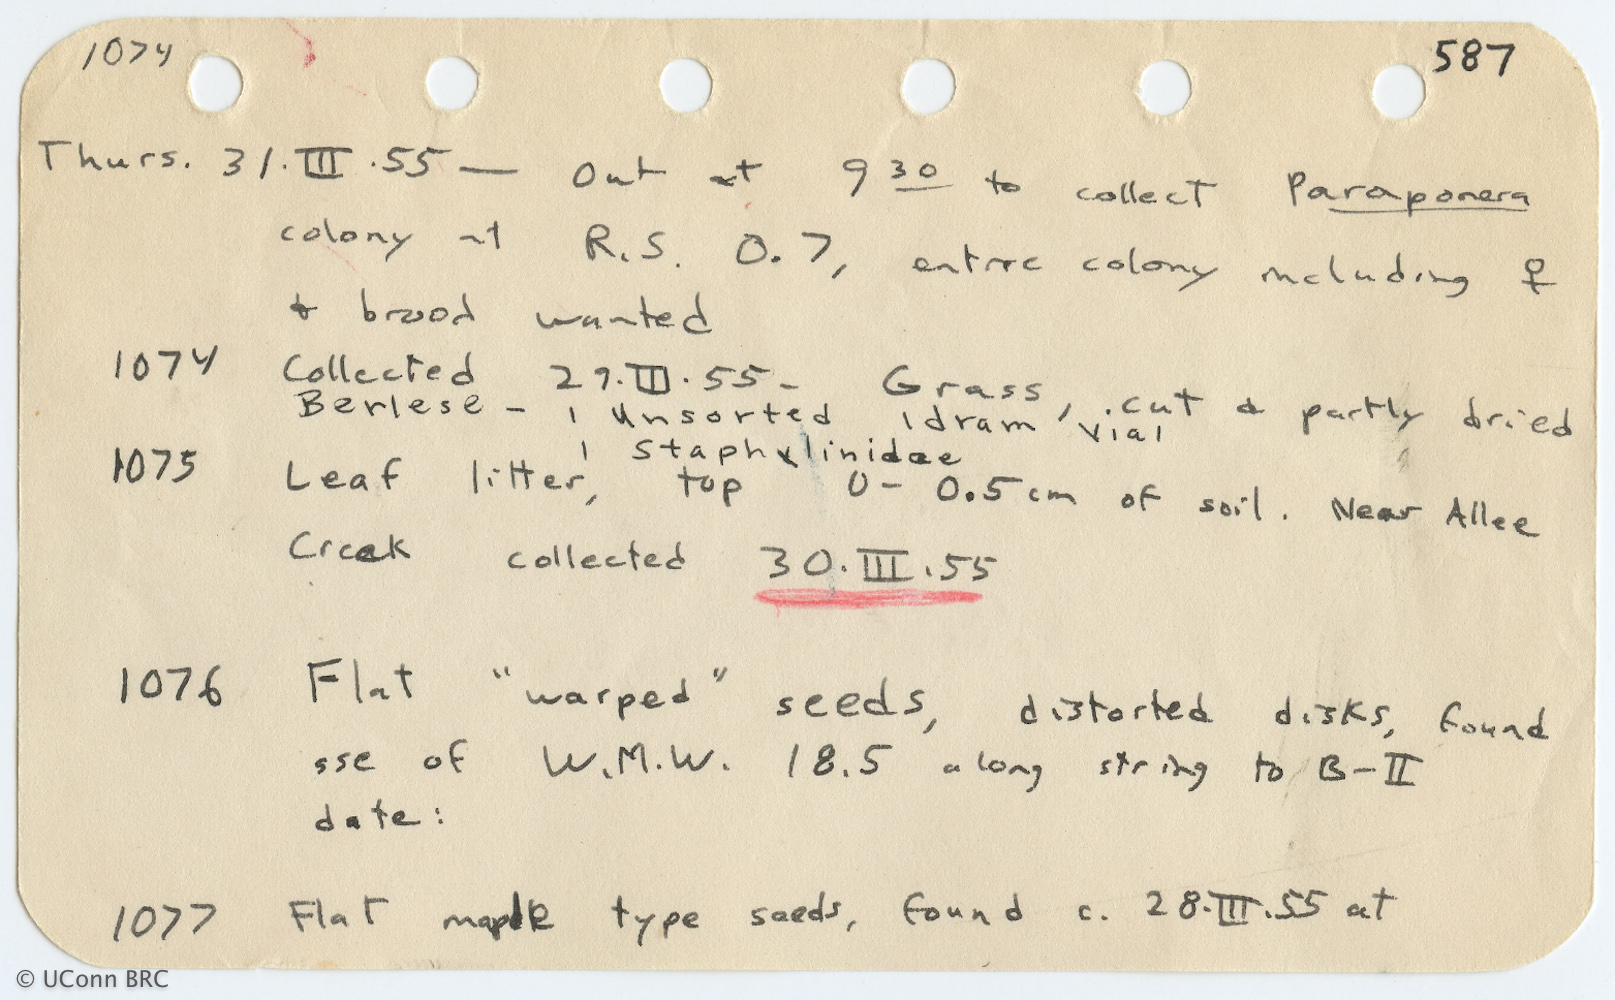 1074 587
Thurs. 31.III.55 — Out at 9 30 to collect Paraponera
colony at R.S. 0.7, entire colony including ♀
& brood wanted
1074 Collected 29.III.55 - Grass, cut & partly dried
Berlese - 1 Unsorted 1 dram vial
1 Staphylinidae
1075 Leaf litter, top 0-0.5 cm of soil. Near Allee
Creek collected 30.III.55
1076 Flat "warped" seeds, distorted disks, found
sse of W.M.W. 18.5 along string to B-II
date:
1077 Flat maple type seeds, found c. 28.III.55 at
© UConn BRC